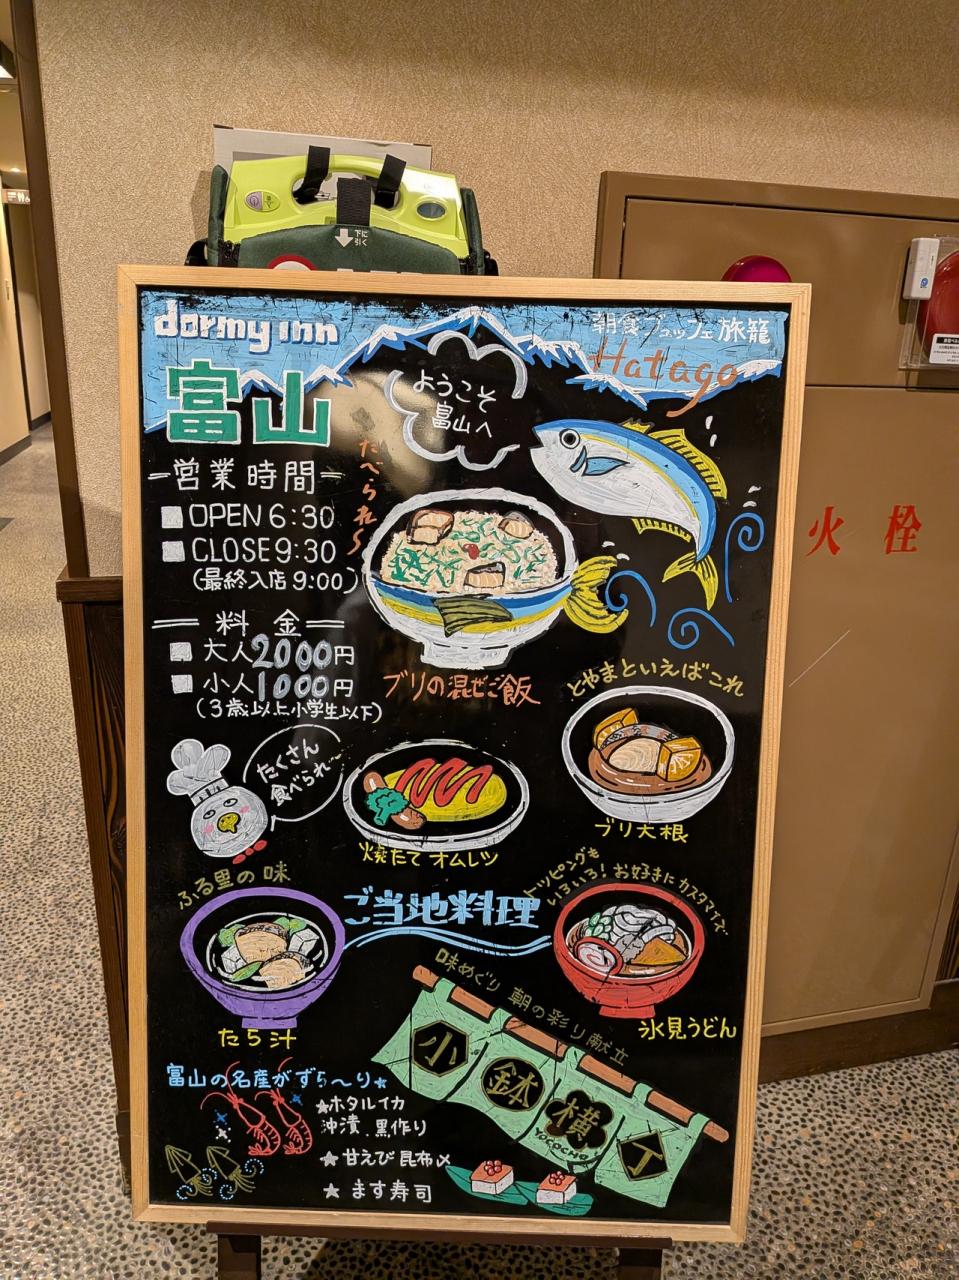 下に
引く
dormy inn
朝食ブュッフェ旅籠
Hatago
富山
ようこそ
富山へ
たべられ〜
ー営業時間ー
OPEN 6:30
CLOSE 9:30
(最終入店 9:00)
料金
大人2000円
小人1000円
(3歳以上小学生以下)
火栓
ブリの混ぜご飯
とやまといえばこれ
ブリ大根
たくさん
食べられ〜
焼たて オムレツ
ふる里の味
たら汁
ご当地料理
トッピングも
いろいろ! お好きにカスタマイズ
氷見うどん
味めぐり 朝の彩り献立
小鉢横丁
YOCOCHO
富山の名産がずら〜り★
★ホタルイカ
沖漬、黒作り
★甘えび昆布〆
★ます寿司